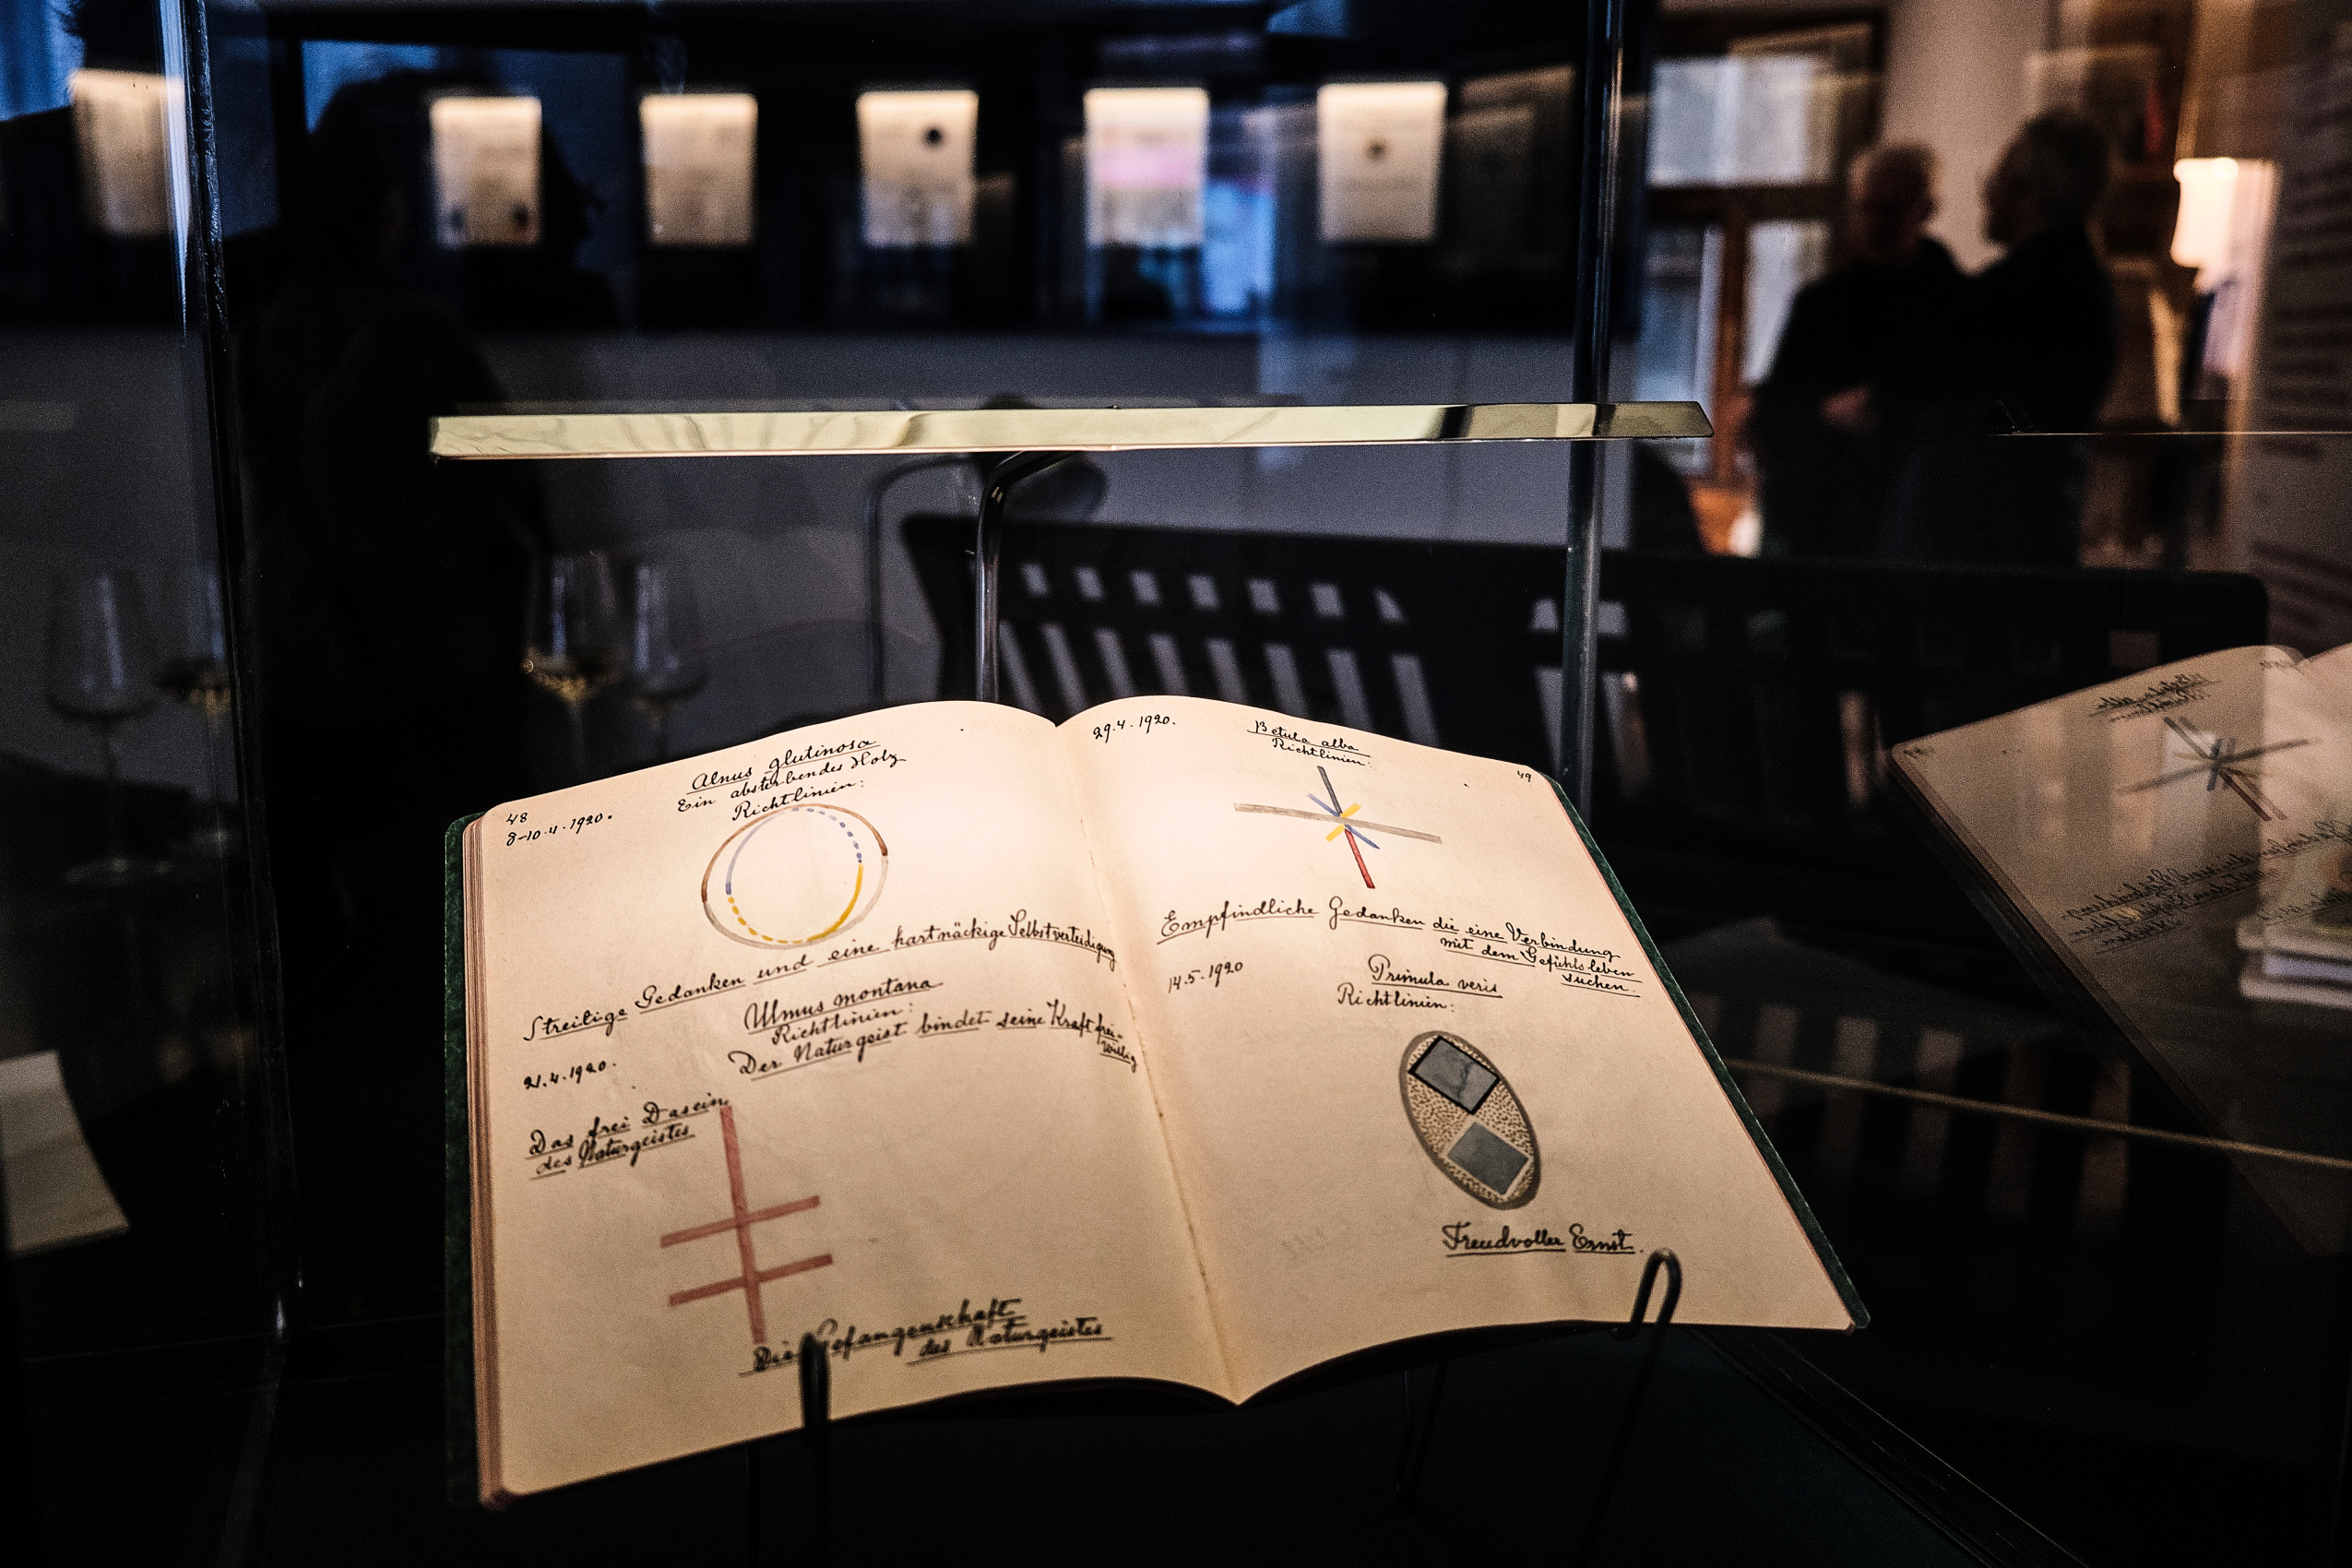 48
8-10.4.1920.
Alnus glutinosa
Ein absterbendes Holz
Richtlinien:
Streitige Gedanken und eine hartnäckige Selbstverteidigung
Ulmus montana
Richtlinien:
Der Naturgeist bindet seine Kraft frei-
willig
21.4.1920.
Das frei Dasein
des Naturgeistes
Die Gefangenschaft
des Naturgeistes
29.4.1920.
Betula alba
Richtlinien:
49
Empfindliche Gedanken die eine Verbindung
mit dem Gefühlsleben
suchen.
14.5.1920
Primula veris
Richtlinien:
Freudvoller Ernst.